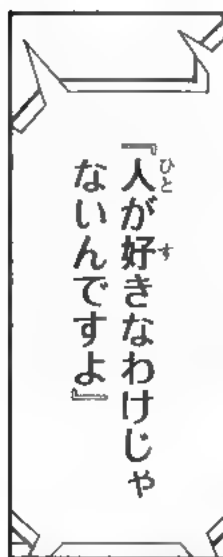 『人が好きなわけじゃ
ないんですよ』